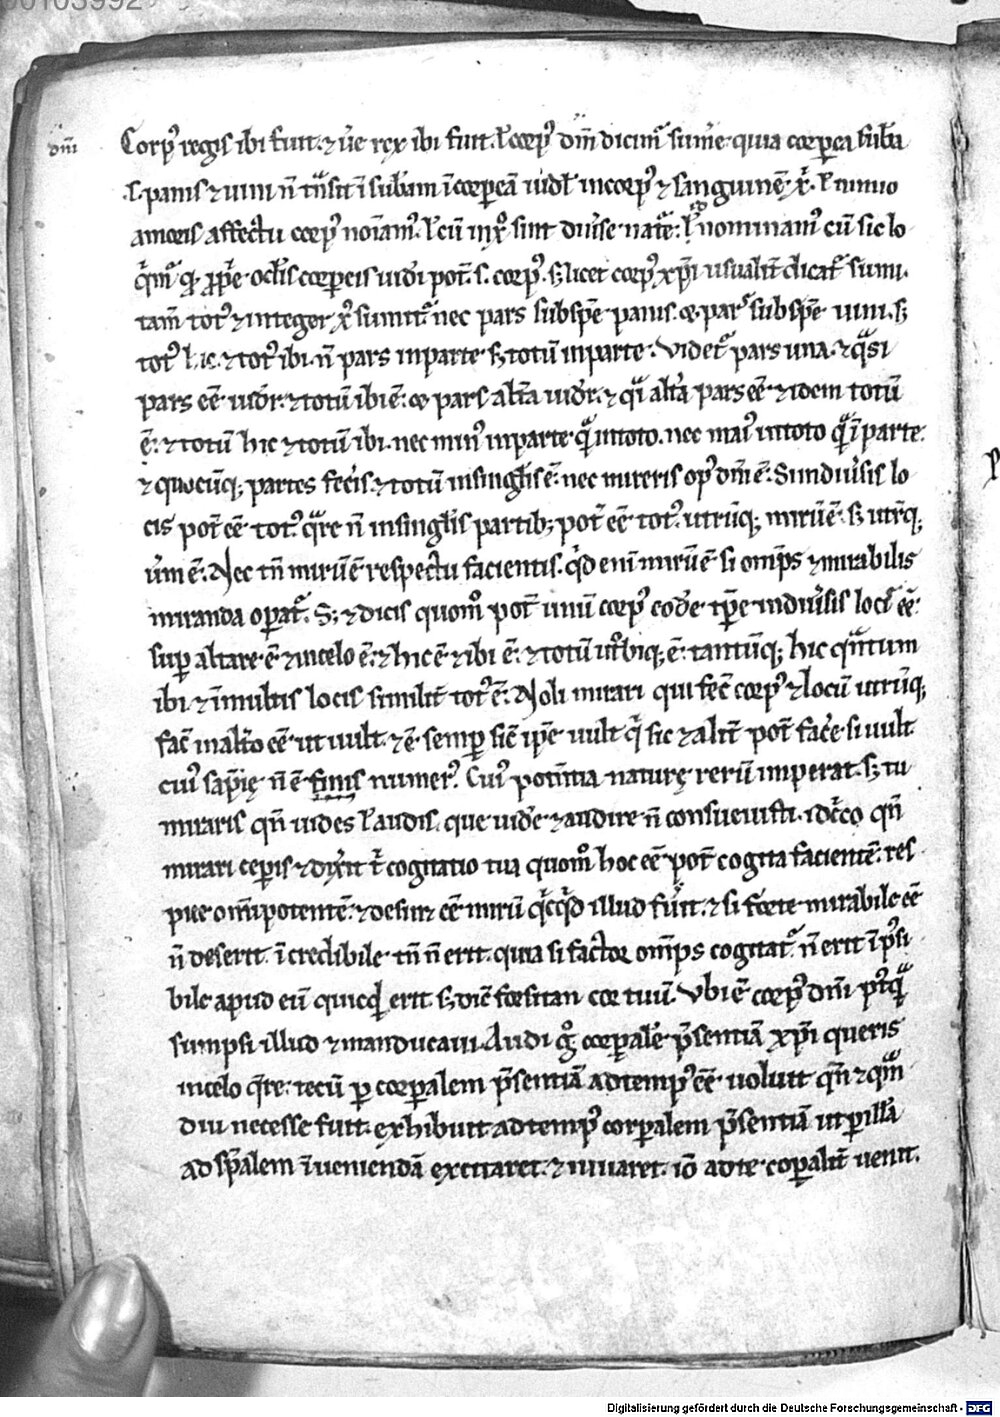 00103992
dm̄
Corp᷒ regis ibi fuit. ⁊ ūe rex ibi fuit. ł corp᷒ dm̄ dicim᷒ sum̄e quia corp̄ea sub̄a
.s. panis ⁊ uini n̄ t̄nsit ī sub̄am ī corp̄eā uidł in corp᷒ ⁊ sanguinē x̄. ł nimio
amoris affectu corp᷒ noīam᷒. ł cū in x̄ᵒ sint diuˀse natˀe: ł nominam᷒ cū sic lo
tam̄ tot᷒ ⁊ integer x̄ᵒ sumitˀ nec pars sub spē panis. ⁊ parˢ sub spē uini. s;
tot᷒ hic. ⁊ tot᷒ ibi. n̄ pars in parte s; totū in parte. Videtˀ pars una. ⁊ qͣsi
pars eē uidˀr. ⁊ totū ibi ē: ⁊ pars altˀa uidˀr. ⁊ qͥ altˀa pars eē ⁊ idem totū
ē: ⁊ totū hic ⁊ totū ibi. nec min᷒ in parte qͣ in toto. nec mai᷒ in toto qͣ ī parte:
⁊ quocūq; partes fecˀis ⁊ totū in singłis ē. nec mireris op᷒ dm̄ ē. Si in diuˀsis lo
cis pot̄ eē tot᷒. qͣre n̄ in singłis partib; pot̄ eē tot᷒. utrūq; mirū ē. s; utrūq;
uˀm ē. Nec tn̄ mirū ē respectu facientis. qͥd eni mirū ē si omīps ⁊ mirabilis
miranda opatˀ. S; ⁊ dicis quomᵒ pot̄ unū corp᷒ codˀe tp̄e in diuˀsis locˀ eē:
sup altare ē ⁊ in celo ē. ⁊ hic ē ⁊ ibi ē: ⁊ totū utˀbiq; ē. tantūq; hic qͣntum
ibi ⁊ ī multis locis similit̄ tot᷒ ē. Noli mirari qui fec̄ corp᷒ ⁊ locū utrūq;
fac̄ in altˀo eē ut uult. ⁊ ē semp sic̄ ip̄e uult qͥ sic ⁊ alit̄ pot̄ facˀe si uult
cui᷒ sapīę n̄ ē finis numer᷒. Cui᷒ potn̄tia naturę rerū imperat. s; tu
miraris qn̄ uides ł audis. que uidˀe ⁊ audire n̄ consueuisti. idcͥco qn̄
mirari cepis ⁊ dix̄it t̄ cogitatio tua quomᵒ hoc eē pot̄ cogita facientē. res
pice omipotentē. ⁊ desin̄ eē mirū qͥcqͥd illud fuˀit. ⁊ si forte mirabile eē
n̄ deserit. ī credibile tn̄ n̄ erit. quia si factor omīps cogitatˀ n̄ erit ī posi
bile apud eū quicqͥd erit. s; dic̄ forsitan cor tuū. Vbi ē corp᷒ dn̄i postqͣ
sumpsi illud ⁊ manducaui. Audi g̊ corpalē p̄sentiā xp̄i queris
in celo qͣre. tecū p corpalem p̄sentiā ad temp᷒ eē uoluit qn̄ ⁊ qͣm
diu necesse fuit. exhibuit ad temp᷒ corpalem p̄sentiā ut p illā
ad sp̄alem īueniendā excitaret. ⁊ iuuaret. iō ad te coᷣpalit̄ uenit.
Digitalisierung gefördert durch die Deutsche Forschungsgemeinschaft - DFG